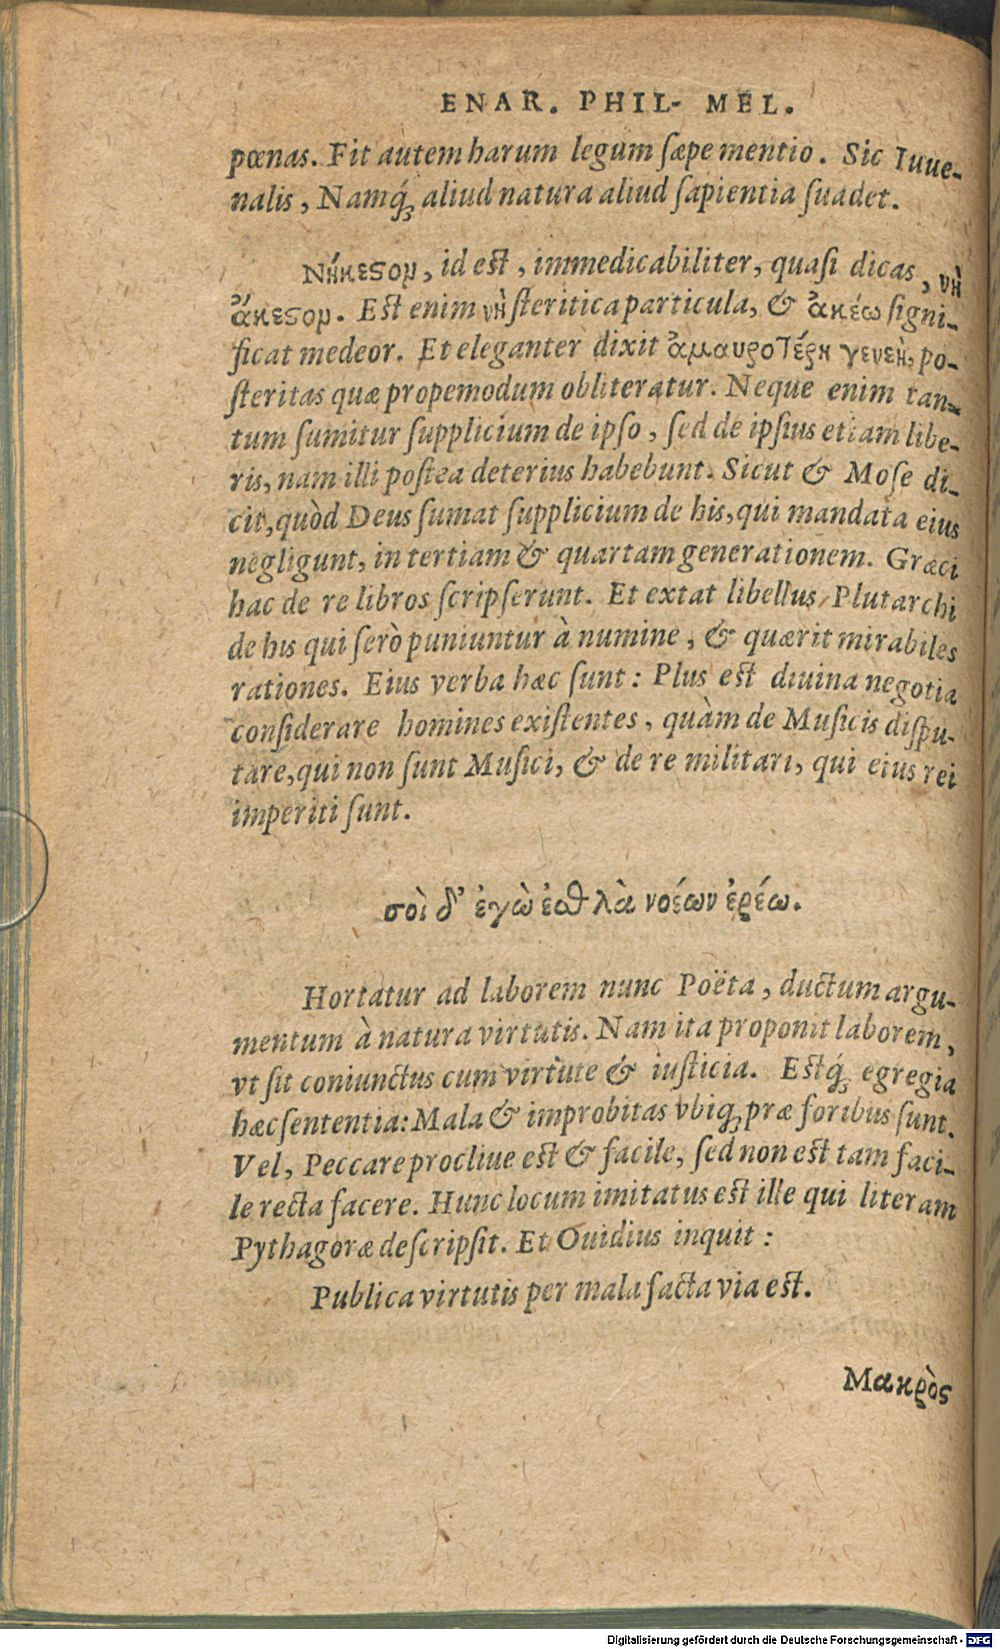 ENAR. PHIL- MEL.
pœnas. Fit autem harum legum sæpe mentio. Sic Iuue-
nalis, Namq́ꝫ aliud natura aliud sapientia suadet.
Νήκεϛομ, id est, immedicabiliter, quasi dicas, νὴ
ἄκεϛομ. Est enim νὴ steritica particula, & ἀκέω signi-
ficat medeor. Et eleganter dixit ἀμαυροτέρη γενεὴ, po-
steritas quæ propemodum obliteratur. Neque enim tan-
tum sumitur supplicium de ipso, sed de ipsius etiam libe-
ris, nam illi postea deterius habebunt. Sicut & Mose di-
cit, quòd Deus sumat supplicium de his, qui mandata eius
negligunt, in tertiam & quartam generationem. Græci
hac de re libros scripserunt. Et extat libellus Plutarchi
de his qui serò puniuntur à numine, & quærit mirabiles
rationes. Eius verba hæc sunt: Plus est diuina negotia
considerare homines existentes, quàm de Musicis dispu-
tare, qui non sunt Musici, & de re militari, qui eius rei
imperiti sunt.
σοὶ δ' ἐγὼ ἐσθλὰ νοέων ἐρέω.
Hortatur ad laborem nunc Poëta, ductum argu-
mentum à natura virtutis. Nam ita proponit laborem,
vt sit coniunctus cum virtute & iusticia. Estq́ꝫ egregia
hæc sententia: Mala & improbitas vbiqꝫ præ foribus sunt.
Vel, Peccare procliue est & facile, sed non est tam faci-
le recta facere. Hunc locum imitatus est ille qui literam
Pythagoræ descripsit. Et Ouidius inquit:
Publica virtutis per mala facta via est.
Μακρὸς
Digitalisierung gefördert durch die Deutsche Forschungsgemeinschaft - DFG